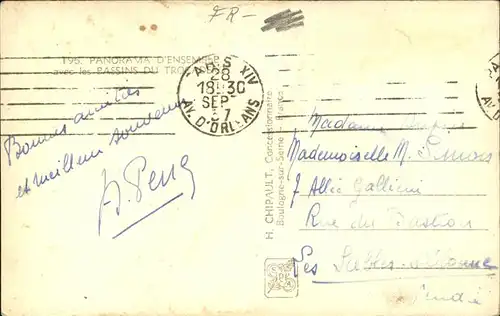 FR-
196. PANORAMA D'ENSEMBLE
avec les BASSINS DU
PARIS XIV
28
18H30
SEP
AV. D'ORLEANS
Bonnes amitiés
et meilleur souvenir
H. CHIPAULT, Concessionnaire
Boulogne-sur-Seine - France
Madame
Mademoiselle M. Simon
7 Allée Gallieni
Rue du Bastion
Les Sables-d'Olonne
Vendée